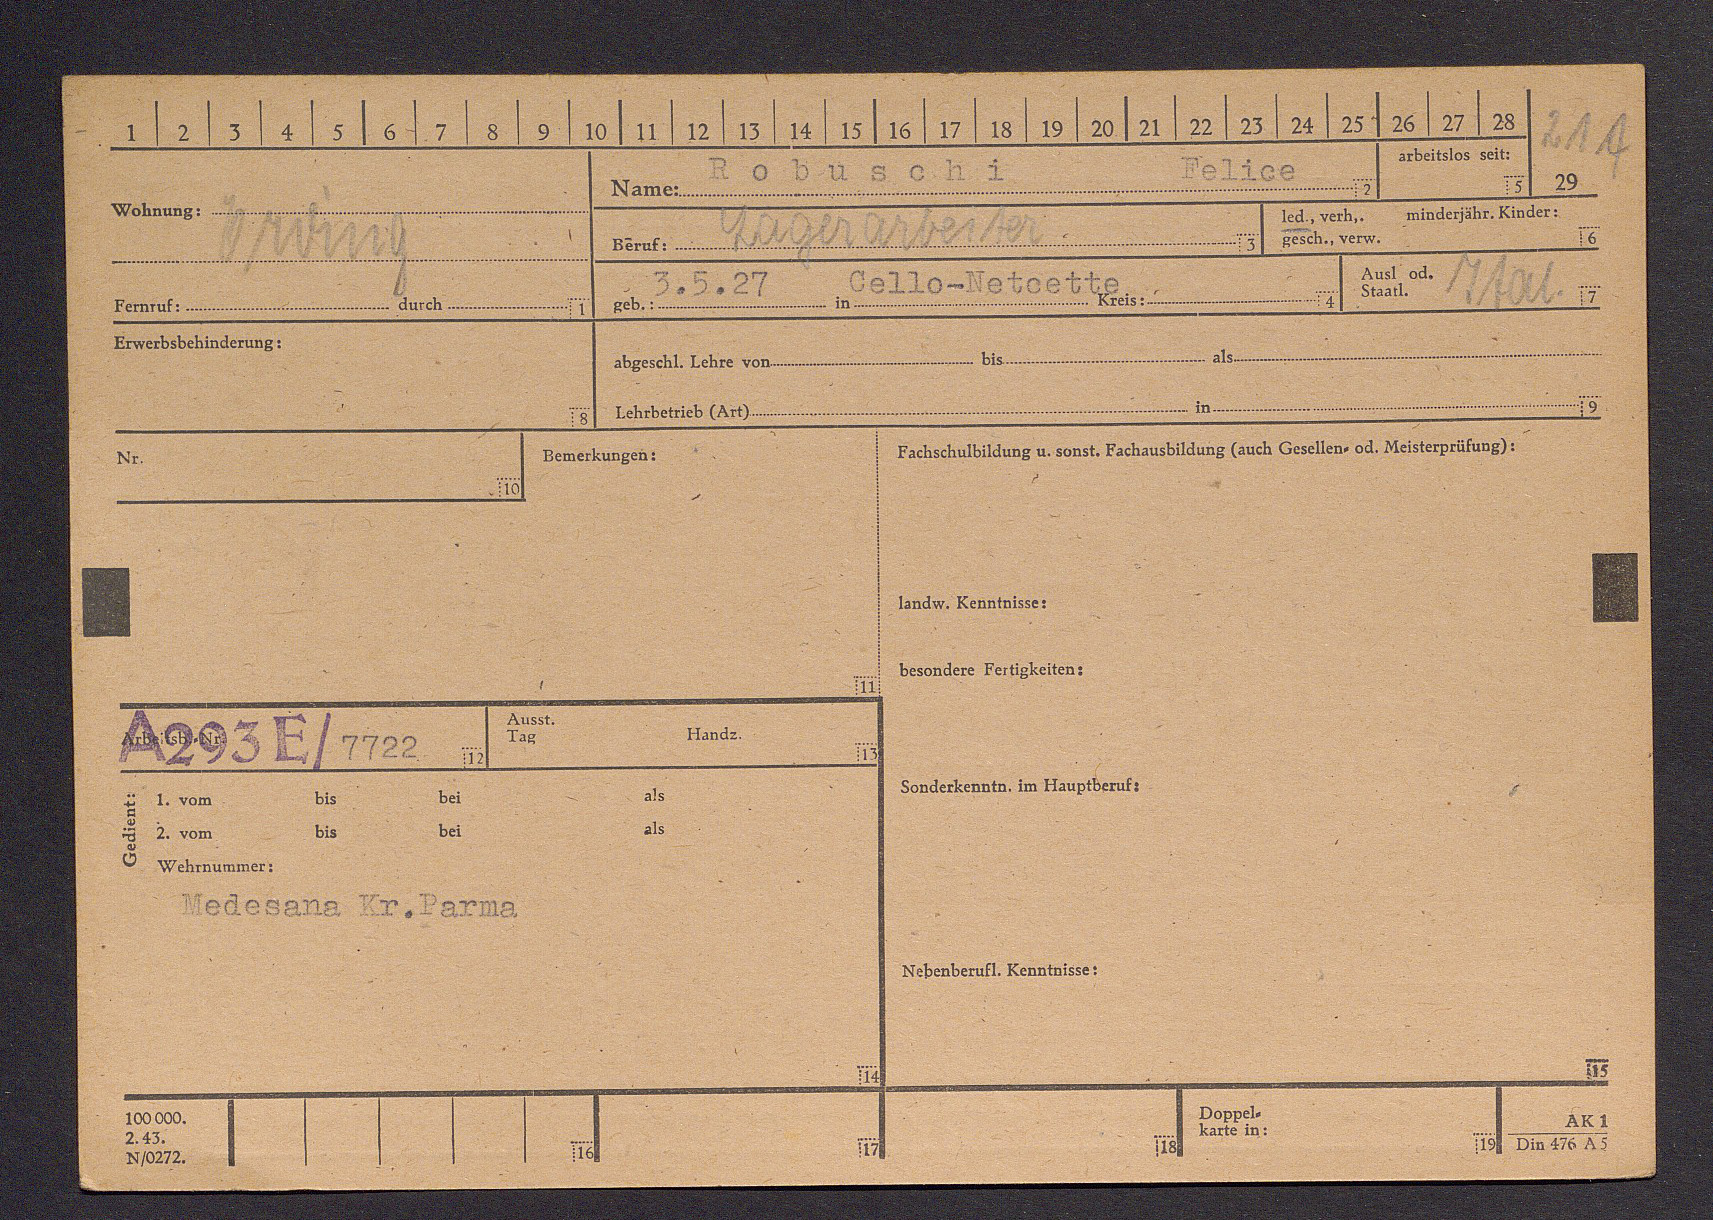 1 2 3 4 5 6 7 8 9 10 11 12 13 14 15 16 17 18 19 20 21 22 23 24 25 26 27 28
29
Wohnung:
Name: Robuschi Felice 2
arbeitslos seit: 5
Beruf: Lagerarbeiter 3
led., verh., minderjähr. Kinder:
gesch., verw. 6
Fernruf: durch 1
geb.: 3.5.27 in Cello-Netcette Kreis: 4
Ausl od.
Staatl. Ital. 7
Erwerbsbehinderung: 8
abgeschl. Lehre von bis als
Lehrbetrieb (Art) in 9
Nr. 10
Bemerkungen: 11
Fachschulbildung u. sonst. Fachausbildung (auch Gesellen- od. Meisterprüfung):
landw. Kenntnisse:
besondere Fertigkeiten:
Arbeitsb.-Nr. A293E/ 7722 12
Ausst.
Tag Handz. 13
Sonderkenntn. im Hauptberuf:
Gedient:
1. vom bis bei als
2. vom bis bei als
Wehrnummer:
Medesana Kr.Parma
14
Nebenberufl. Kenntnisse:
15
100 000.
2. 43.
N/0272.
16 17 18
Doppel-
karte in: 19
AK 1
Din 476 A 5